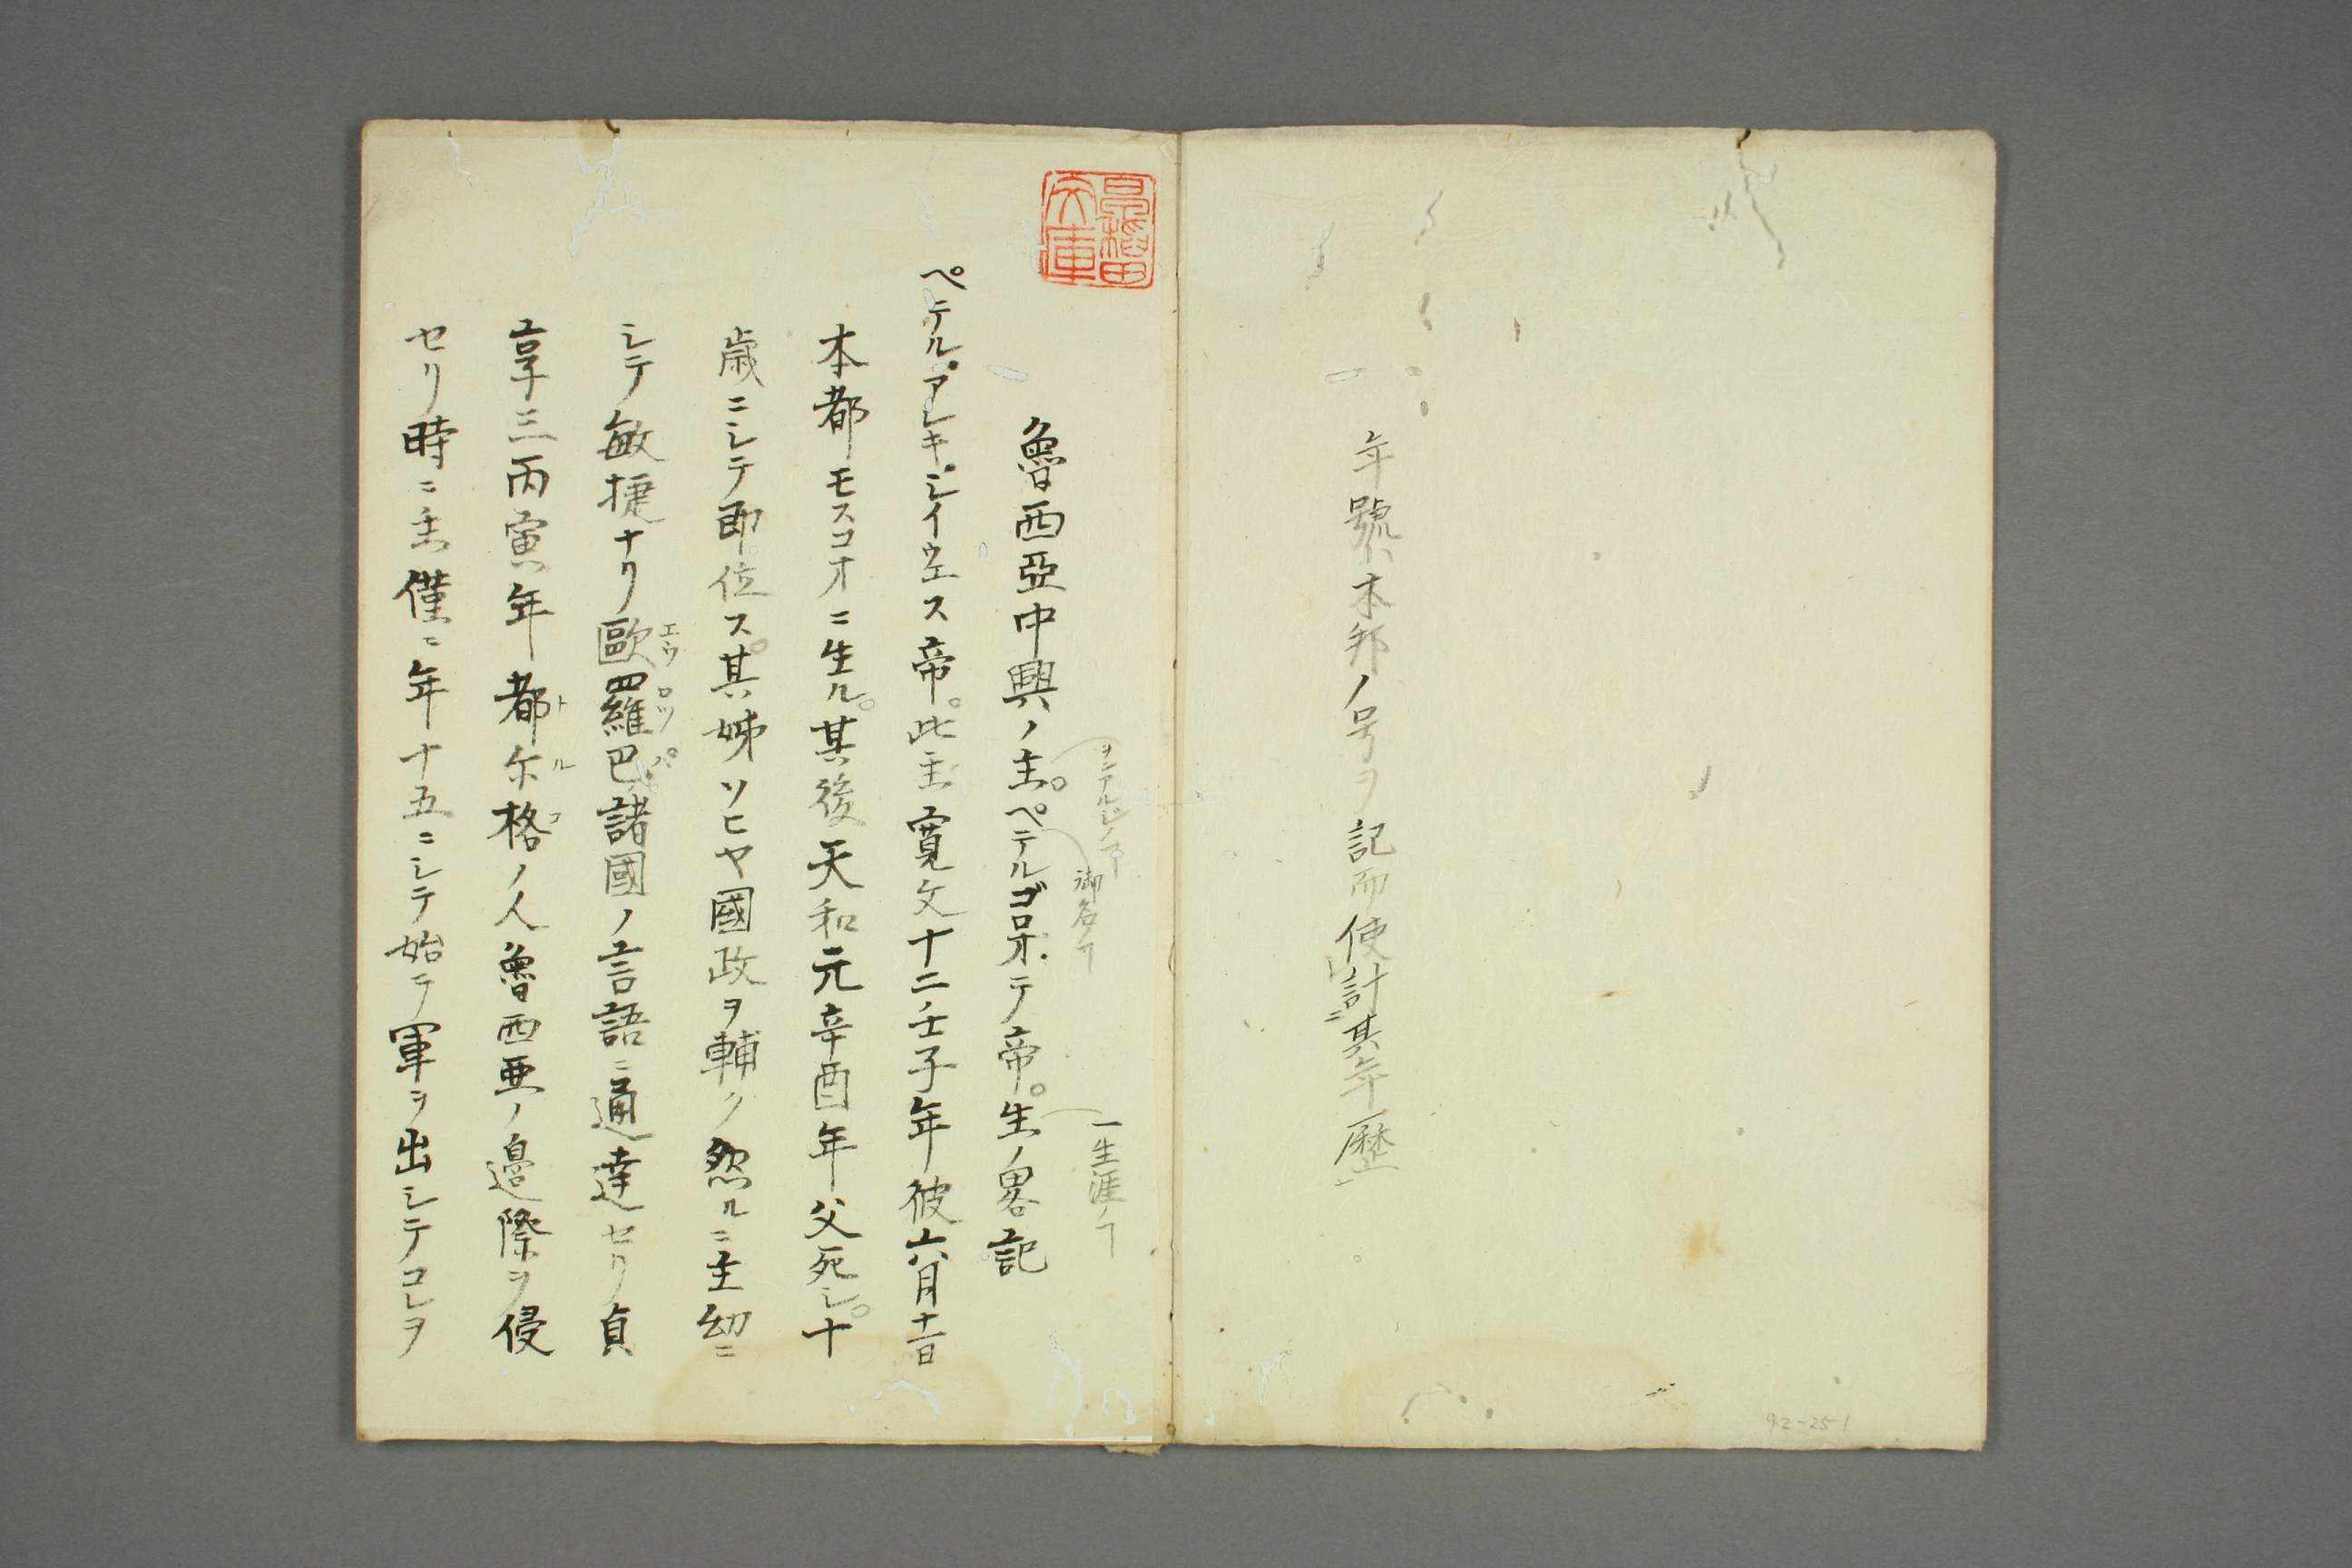 年號ハ本邦ノ号ヲ記而使計其年歷
92-251
魯西亞中興ノ主。ペテルゴロオテ帝。生ノ畧記
御名ノヿ
一生涯ノヿ
ペテル。アレキシイウエス帝。此主寛文十二壬子年彼六月十一日
本都モスコオニ生ル。其後天和元辛酉年父死シ。十
歳ニシテ即位ス。其姊ソヒヤ國政ヲ輔ク然ルニ主幼ニ
シテ敏捷ナリ歐羅巴諸國ノ言語ニ通達セリ貞
エウロツパ
享三丙寅年都尓格ノ人魯西亜ノ邉際ヲ侵
トルコ
セリ時ニ主僅ニ年十五ニシテ始テ軍ヲ出シテコレヲ